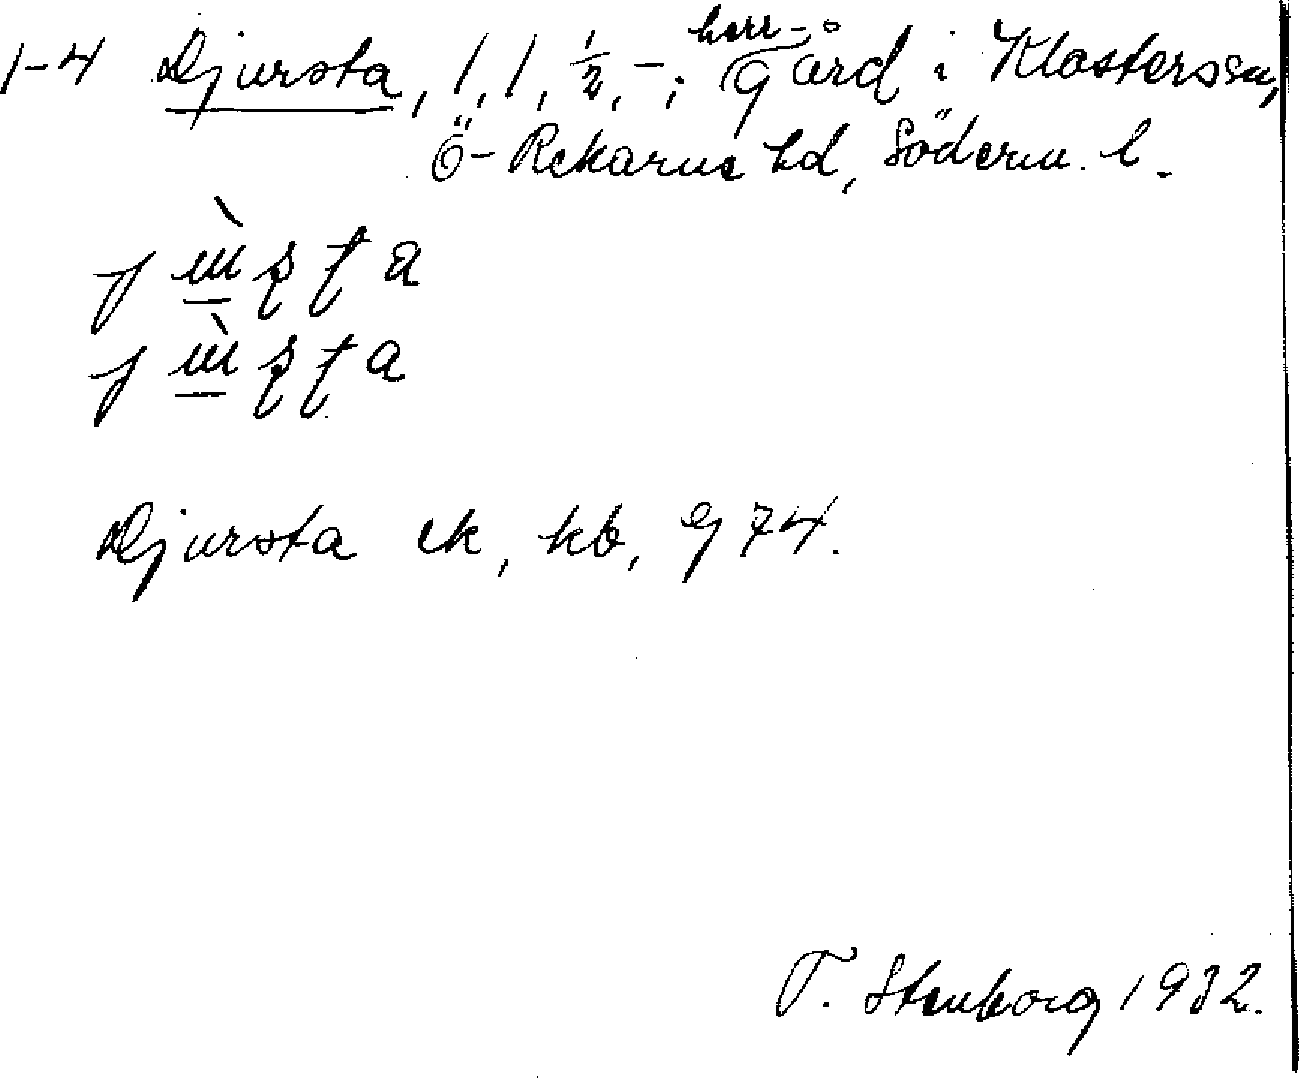 1-4 Djursta, 1, 1, ½, -; herr-gård i Klosters sn,
Ö-Rekarne hd, Söderm. l.
Djursta ek, kb, g 74.
T. Stenborg 1932.